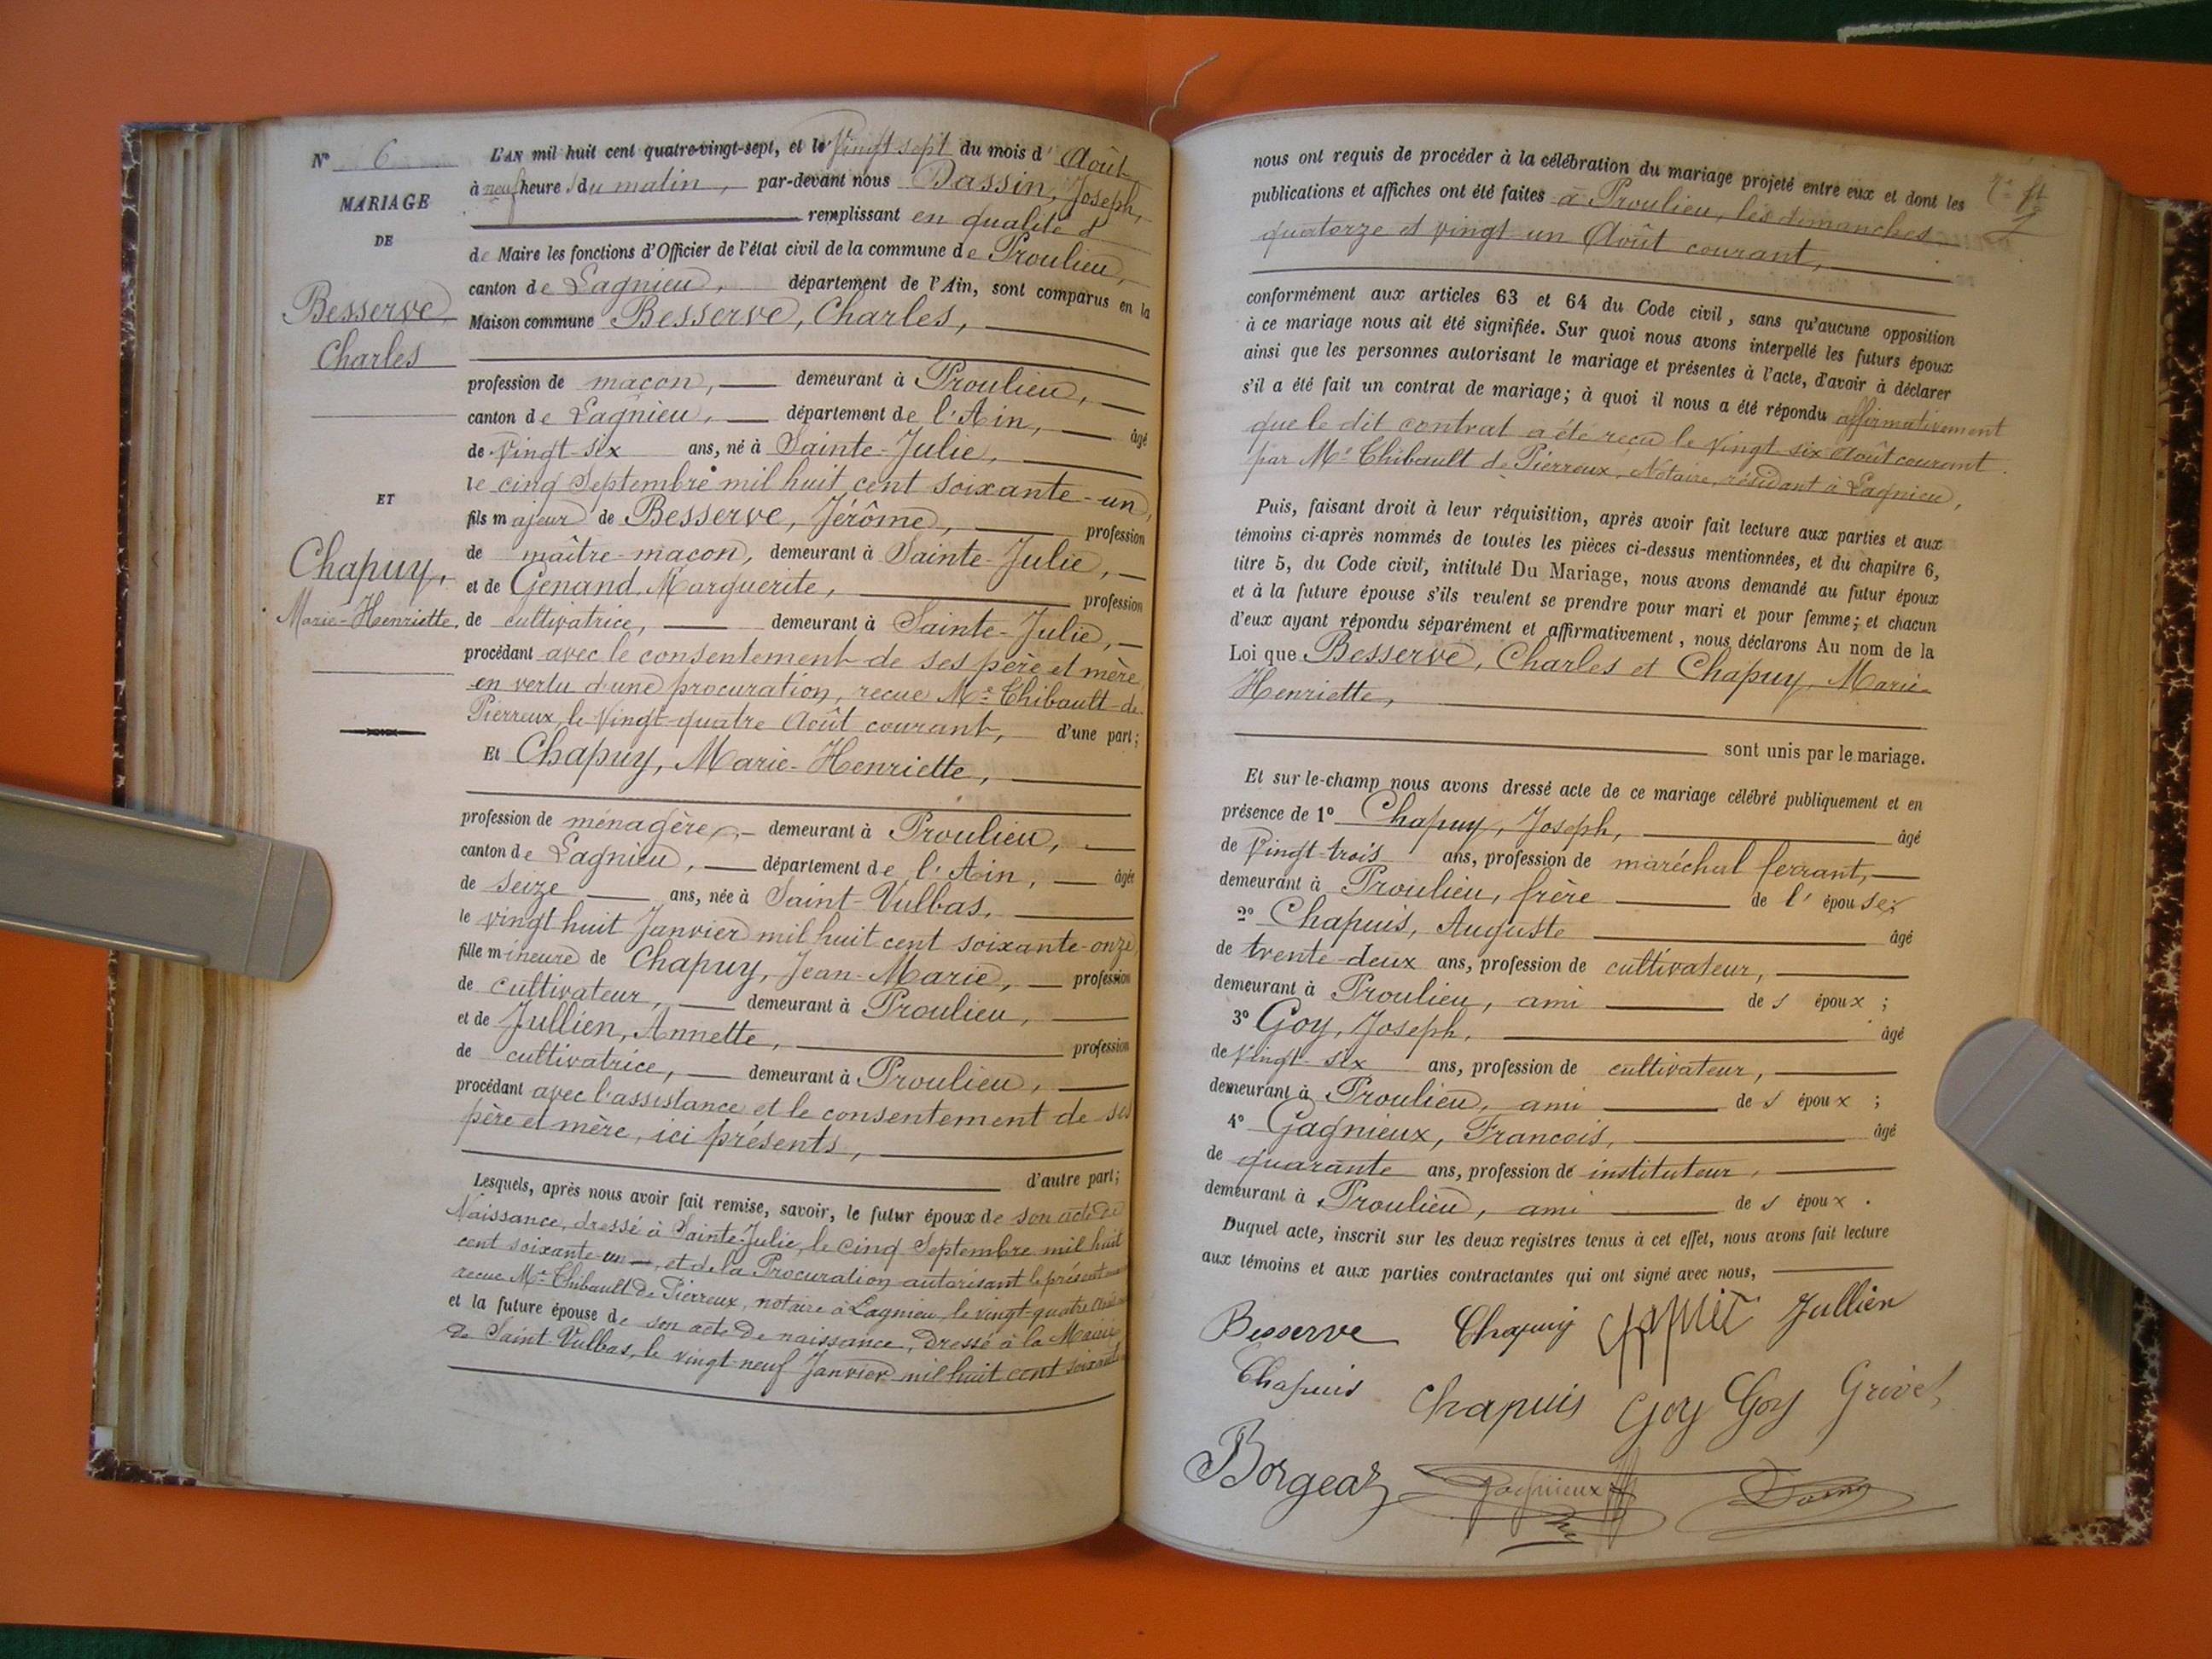 N° 6
MARIAGE
DE
Besserve
Charles
ET
Chapuy,
Marie-Henriette,
L'AN mil huit cent quatre-vingt-sept, et le Vingt sept du mois d' Août
à neuf heures du matin, par-devant nous Dassin, Joseph,
remplissant en qualité d
de Maire les fonctions d'Officier de l'état civil de la commune de Proulieu,
canton de Lagnieu, département de l'Ain, sont comparus en la
Maison commune Besserve, Charles,
profession de maçon, demeurant à Proulieu,
canton de Lagnieu, département de l'Ain, âgé
de Vingt-six ans, né à Sainte-Julie,
le cinq Septembre mil huit cent soixante-un,
fils majeur de Besserve, Jérôme, profession
de maître-maçon, demeurant à Sainte-Julie,
et de Genand, Marguerite, profession
de cultivatrice, demeurant à Sainte-Julie,
procédant avec le consentement de ses père et mère
en vertu d'une procuration, recue Me Thibault-de-
Pierreux, le Vingt-quatre Août courant, d'une part;
Et Chapuy, Marie-Henriette,
profession de ménagère, demeurant à Proulieu,
canton de Lagnieu, département de l'Ain, âgée
de seize ans, née à Saint-Vulbas,
le vingt huit Janvier mil huit cent soixante-onze
fille mineure de Chapuy, Jean-Marie, profession
de cultivateur, demeurant à Proulieu,
et de Jullien, Annette, profession
de cultivatrice, demeurant à Proulieu,
procédant avec l'assistance et le consentement de ses
père et mère, ici présents,
d'autre part;
Lesquels, après nous avoir fait remise, savoir, le futur époux de son acte de
Naissance, dressé à Sainte-Julie, le cinq Septembre mil huit
cent soixante-un, et de la Procuration autorisant le présent
recue Me Thibault de Pierreux, notaire à Lagnieu, le vingt-quatre Août
et la future épouse de son acte de naissance, dressé à la Mairie
de Saint-Vulbas, le vingt-neuf Janvier mil huit cent soixante
nous ont requis de procéder à la célébration du mariage projeté entre eux et dont les
publications et affiches ont été faites à Proulieu, les dimanches
quatorze et vingt-un Août courant,
conformément aux articles 63 et 64 du Code civil, sans qu'aucune opposition
à ce mariage nous ait été signifiée. Sur quoi nous avons interpellé les futurs époux
ainsi que les personnes autorisant le mariage et présentes à l'acte, d'avoir à déclarer
s'il a été fait un contrat de mariage; à quoi il nous a été répondu affirmativement
que le dit contrat a été reçu le vingt six Août courant
par Me Thibault de Pierreux, Notaire, résidant à Lagnieu,
Puis, faisant droit à leur réquisition, après avoir fait lecture aux parties et aux
témoins ci-après nommés de toutes les pièces ci-dessus mentionnées, et du chapitre 6,
titre 5, du Code civil, intitulé Du Mariage, nous avons demandé au futur époux
et à la future épouse s'ils veulent se prendre pour mari et pour femme; et chacun
d'eux ayant répondu séparément et affirmativement, nous déclarons Au nom de la
Loi que Besserve, Charles et Chapuy, Marie-
Henriette,
sont unis par le mariage.
Et sur-le-champ nous avons dressé acte de ce mariage célébré publiquement et en
présence de 1° Chapuy, Joseph, âgé
de Vingt-trois ans, profession de maréchal ferrant,
demeurant à Proulieu, frère de l' épouse;
2° Chapuis, Auguste âgé
de trente-deux ans, profession de cultivateur,
demeurant à Proulieu, ami des époux;
3° Goy, Joseph, âgé
de Vingt-six ans, profession de cultivateur,
demeurant à Proulieu, ami des époux;
4° Gagnieux, Francois, âgé
de quarante ans, profession de instituteur,
demeurant à Proulieu, ami des époux.
Duquel acte, inscrit sur les deux registres tenus à cet effet, nous avons fait lecture
aux témoins et aux parties contractantes qui ont signé avec nous,
Besserve Chapuy Jullien
Chapuis Chapuis Goy Goy Grivel
Borgeas Gagnieux